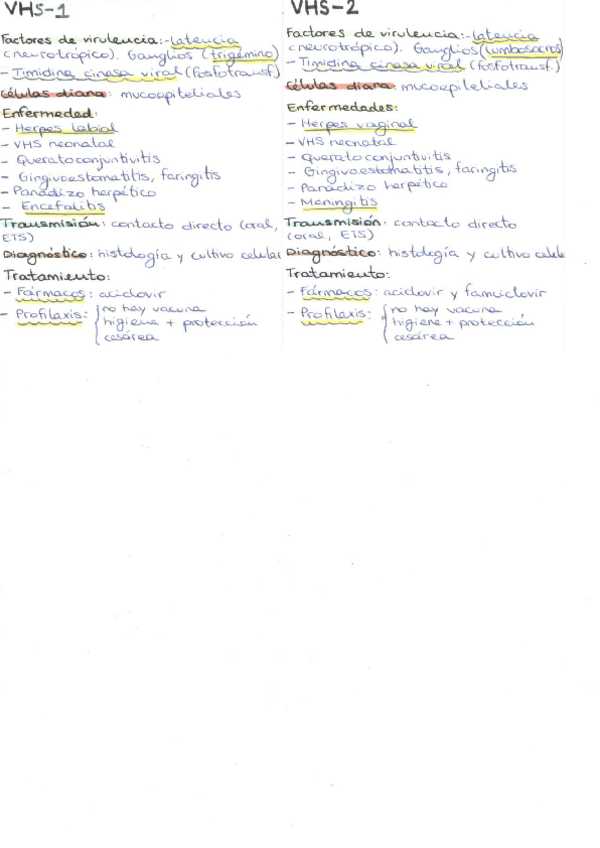 VHS-1
Factores de virulencia: -latencia
(neurotrópico). Ganglios (trigémino)
- Timidina cinasa viral (fosfotransf)
Células diana: mucoepiteliales
Enfermedad:
- Herpes labial
- VHS neonatal
- Queratoconjuntivitis
- Gingivoestomatitis, faringitis
- Panadizo herpético
- Encefalitis
Transmisión: contacto directo (oral,
ETS)
Diagnóstico: histología y cultivo celular
Tratamiento:
- Fármacos: aciclovir
- Profilaxis: { no hay vacuna
higiene + protección
cesárea
VHS-2
Factores de virulencia: -latencia
(neurotrópico). Ganglios (lumbosacros)
- Timidina cinasa viral (fosfotransf.)
Células diana: mucoepiteliales
Enfermedades:
- Herpes vaginal
- VHS neonatal
- Queratoconjuntivitis
- Gingivoestomatitis, faringitis
- Panadizo herpético
- Meningitis
Transmisión: contacto directo
(oral, ETS)
Diagnóstico: histología y cultivo celule
Tratamiento:
- Fármacos: aciclovir y famciclovir
- Profilaxis: { no hay vacuna
higiene + protección
cesárea